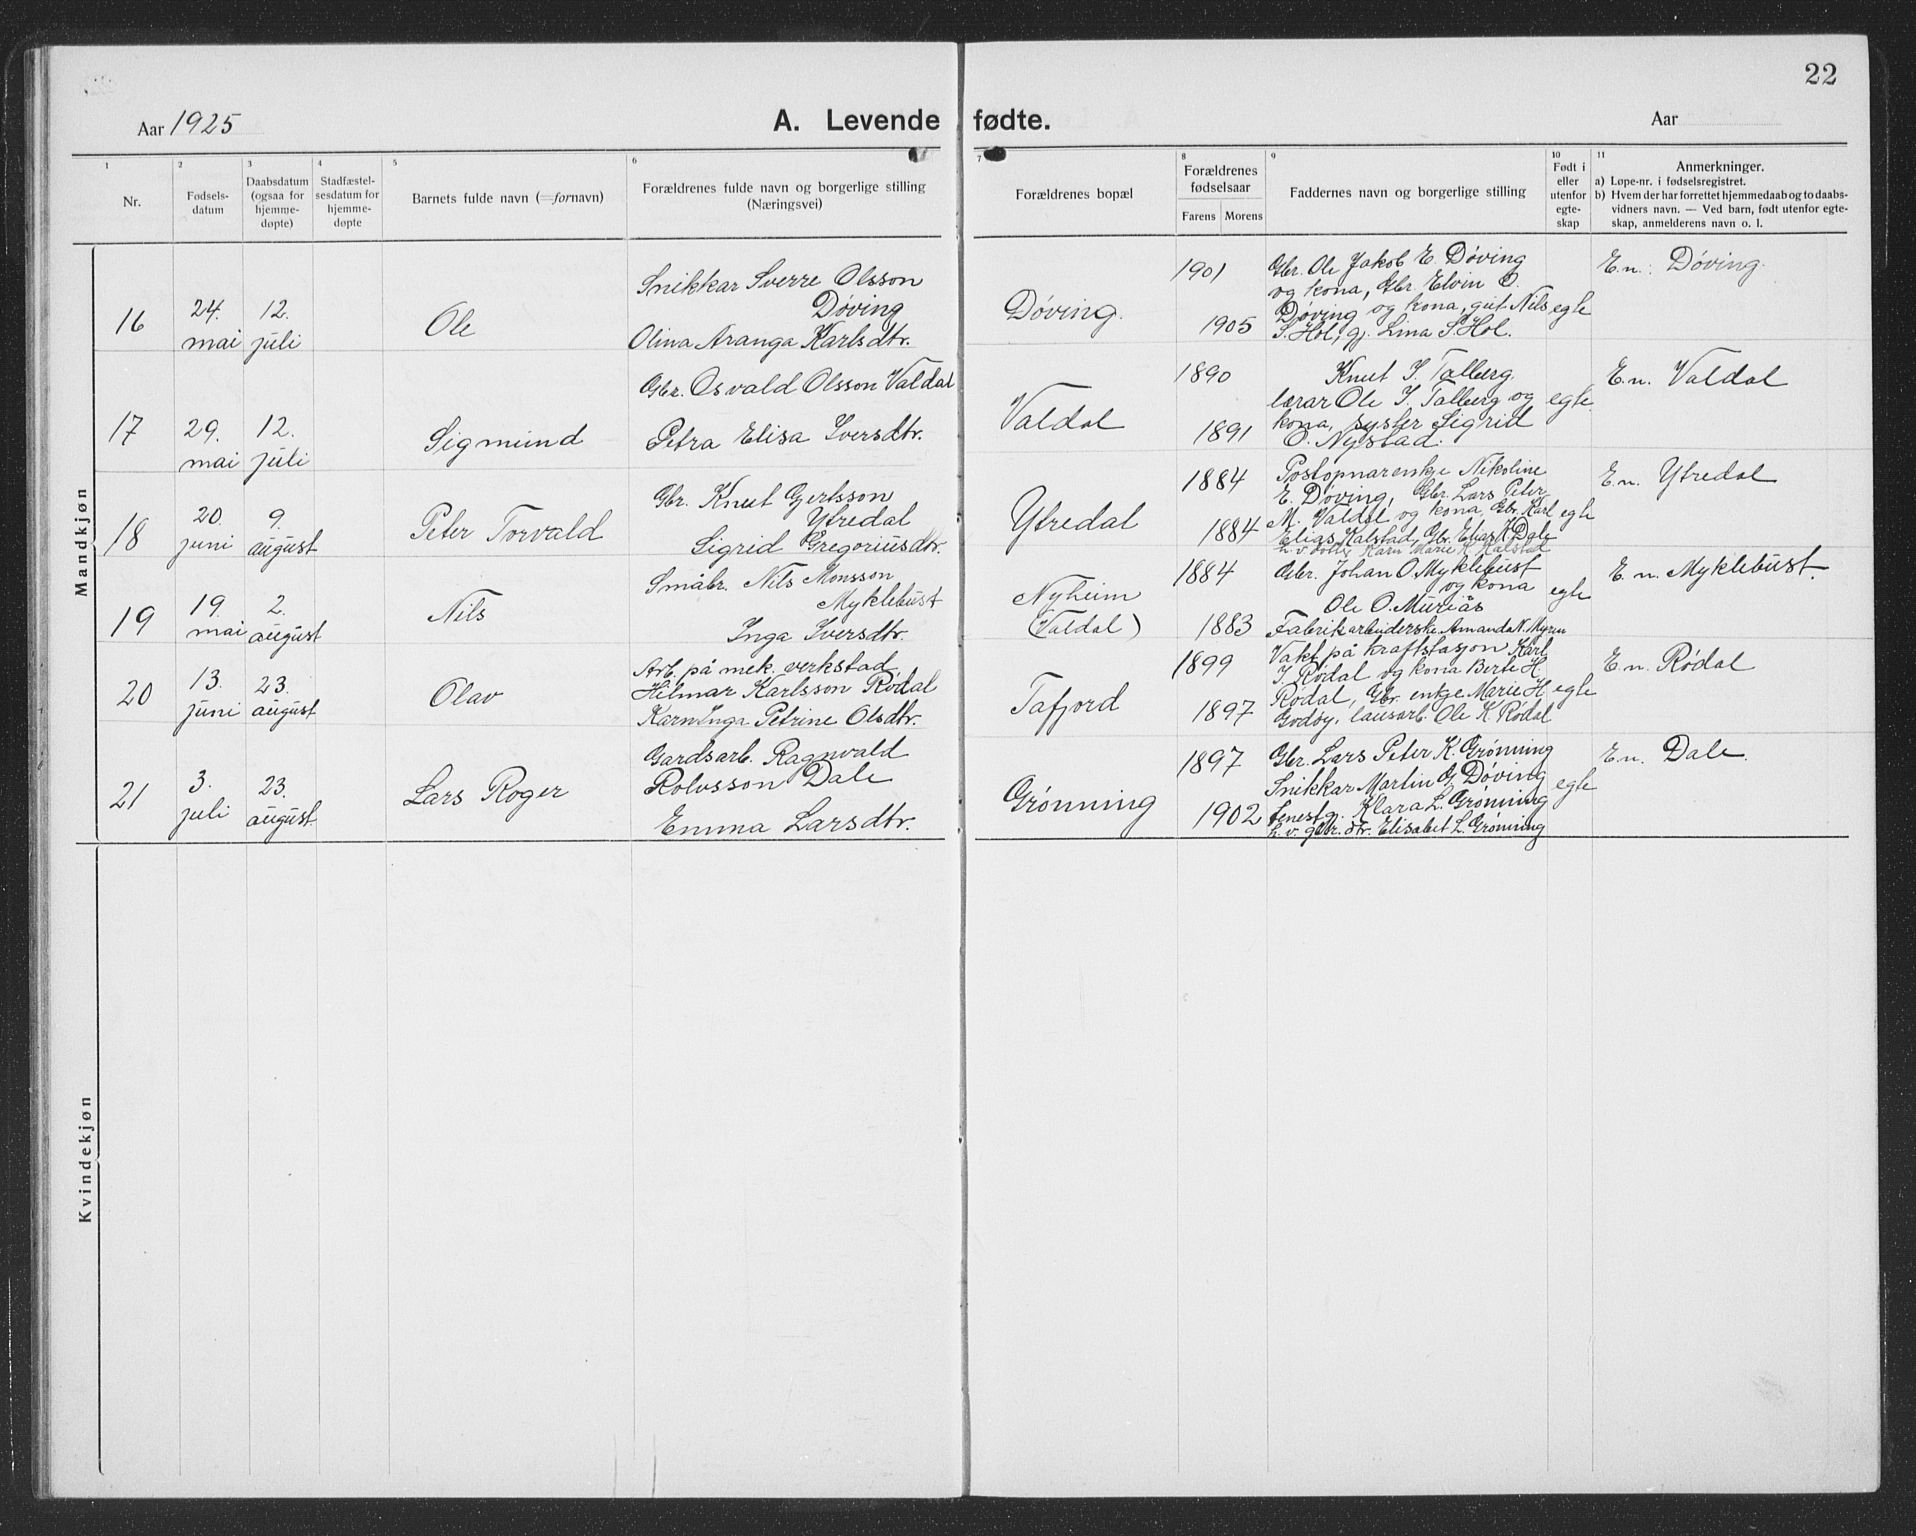 22
Aar 1925
A. Levende fødte.
Aar
1
2
3
4
5
6
7
8
9
10
11
Nr.
Fødsels-
datum
Daabsdatum
(ogsaa for
hjemme-
døpte)
Stadfæstel-
sesdatum for
hjemme-
døpte
Barnets fulde navn (=fornavn)
Forældrenes fulde navn og borgerlige stilling
(Næringsvei)
Forældrenes bopæl
Forældrenes
fødselsaar
Farens
Morens
Faddernes navn og borgerlige stilling
Født i
eller
utenfor
egte-
skap
Anmerkninger.
a) Løpe-nr. i fødselsregistret.
b) Hvem der har forrettet hjemmedaab og to daabs-
vidners navn. — Ved barn, født utenfor egte-
skap, anmelderens navn o. l.
Mandkjøn
16
24.
mai
12.
juli
Ole
Snikkar Sverre Olsson
Døving
Olina Aranga Karlsdtr.
Døving.
1901
1905
Gbr. Ole Jakob E. Døving
og kona, Gbr. Elvin O.
Døving og kona, gut Nils
S. Hol, gj. Lina S. Hol.
egte
E.n. Døving.
17
29.
mai
12.
juli
Sigmund
Gbr. Osvald Olsson Valdal
Petra Elisa Iversdtr.
Valdal
1890
1891
Knut I. Talberg
lærar Ole I. Talberg og
kona, syster Sigrid
O. Nystad.
egte
E.n. Valdal
18
20.
juni
9.
august
Peter Torvald
Gbr. Knut Gjertsson
Ytredal
Sigrid Gregoriusdtr.
Ytredal
1884
1884
Postopnarenkje Nikoline
E. Døving, Gbr. Lars Peter
M. Valdal og kona, Gbr. Karl
Elias Kalstad, Gbr. Elias K. Dale
h. v. Karn Marie K. Kalstad
egte
E.n. Ytredal
19
19.
mai
2.
august
Nils
Småbr. Nils Monsson
Myklebust
Inga Iversdtr.
Nyheim
(Valdal)
1884
1883
Gbr. Johan O. Myklebust
og kona
Ole O. Muriås
Fabrikarbeiderske Amanda N. Myren
egte
E.n. Myklebust.
20
13.
juni
23.
august
Olav
Arb. på mek. verkstad
Hilmar Karlsson Rødal
Karn Inga Petrine Olsdtr.
Tafjord
1899
1897
Vakt på kraftstasjon Karl
I. Rødal og kona Berte H.
Rødal, Gbr. enkje Marie H.
Godøy, lausarb. Ole K. Rødal
egte
E.n. Rødal
21
3.
juli
23.
august.
Lars Roger
Gardsarb. Ragnvald
Rolvsson Dale
Emma Larsdtr.
Grønning
1897
1902
Gbr. Lars Peter K. Grønning
Snikkar Martin G. Døving
tenestgj. Klara L. Grønning
h. v. gbr. dtr. Elisabet L. Grønning
egte
E.n. Dale.
Kvindekjøn